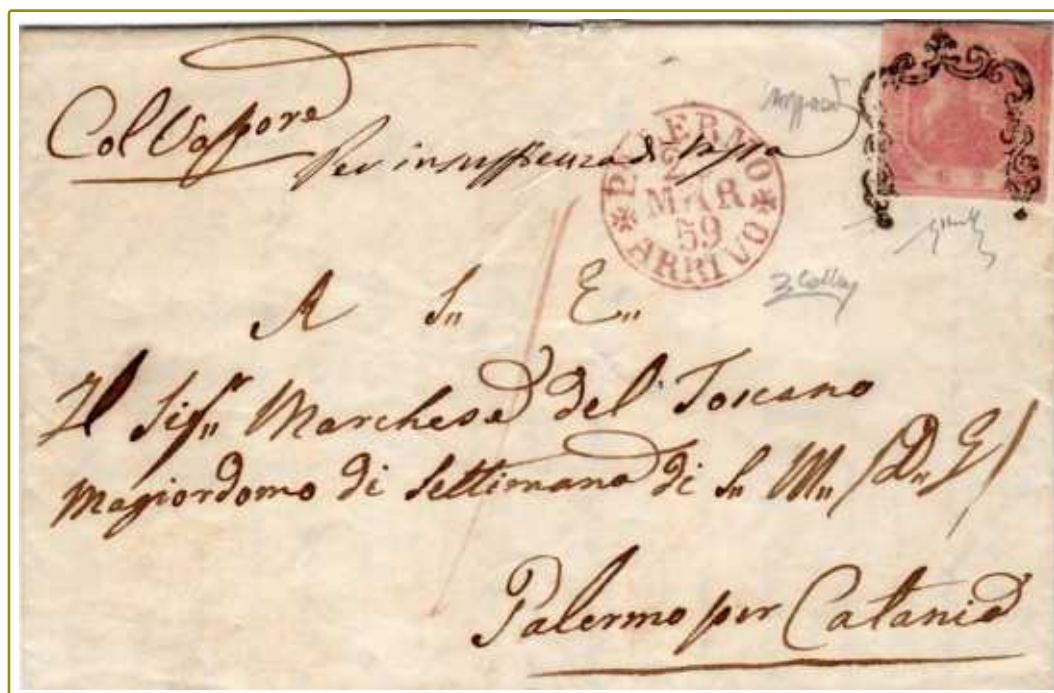 Col Vapore
Per insufficienza di
PALERMO
MAR
59
ARRIVO
A S.n E.n
Il Sig.r Marchese del Toscano
Magiordomo di Settimana di S.n M.n (D.n G)
Palermo per Catania